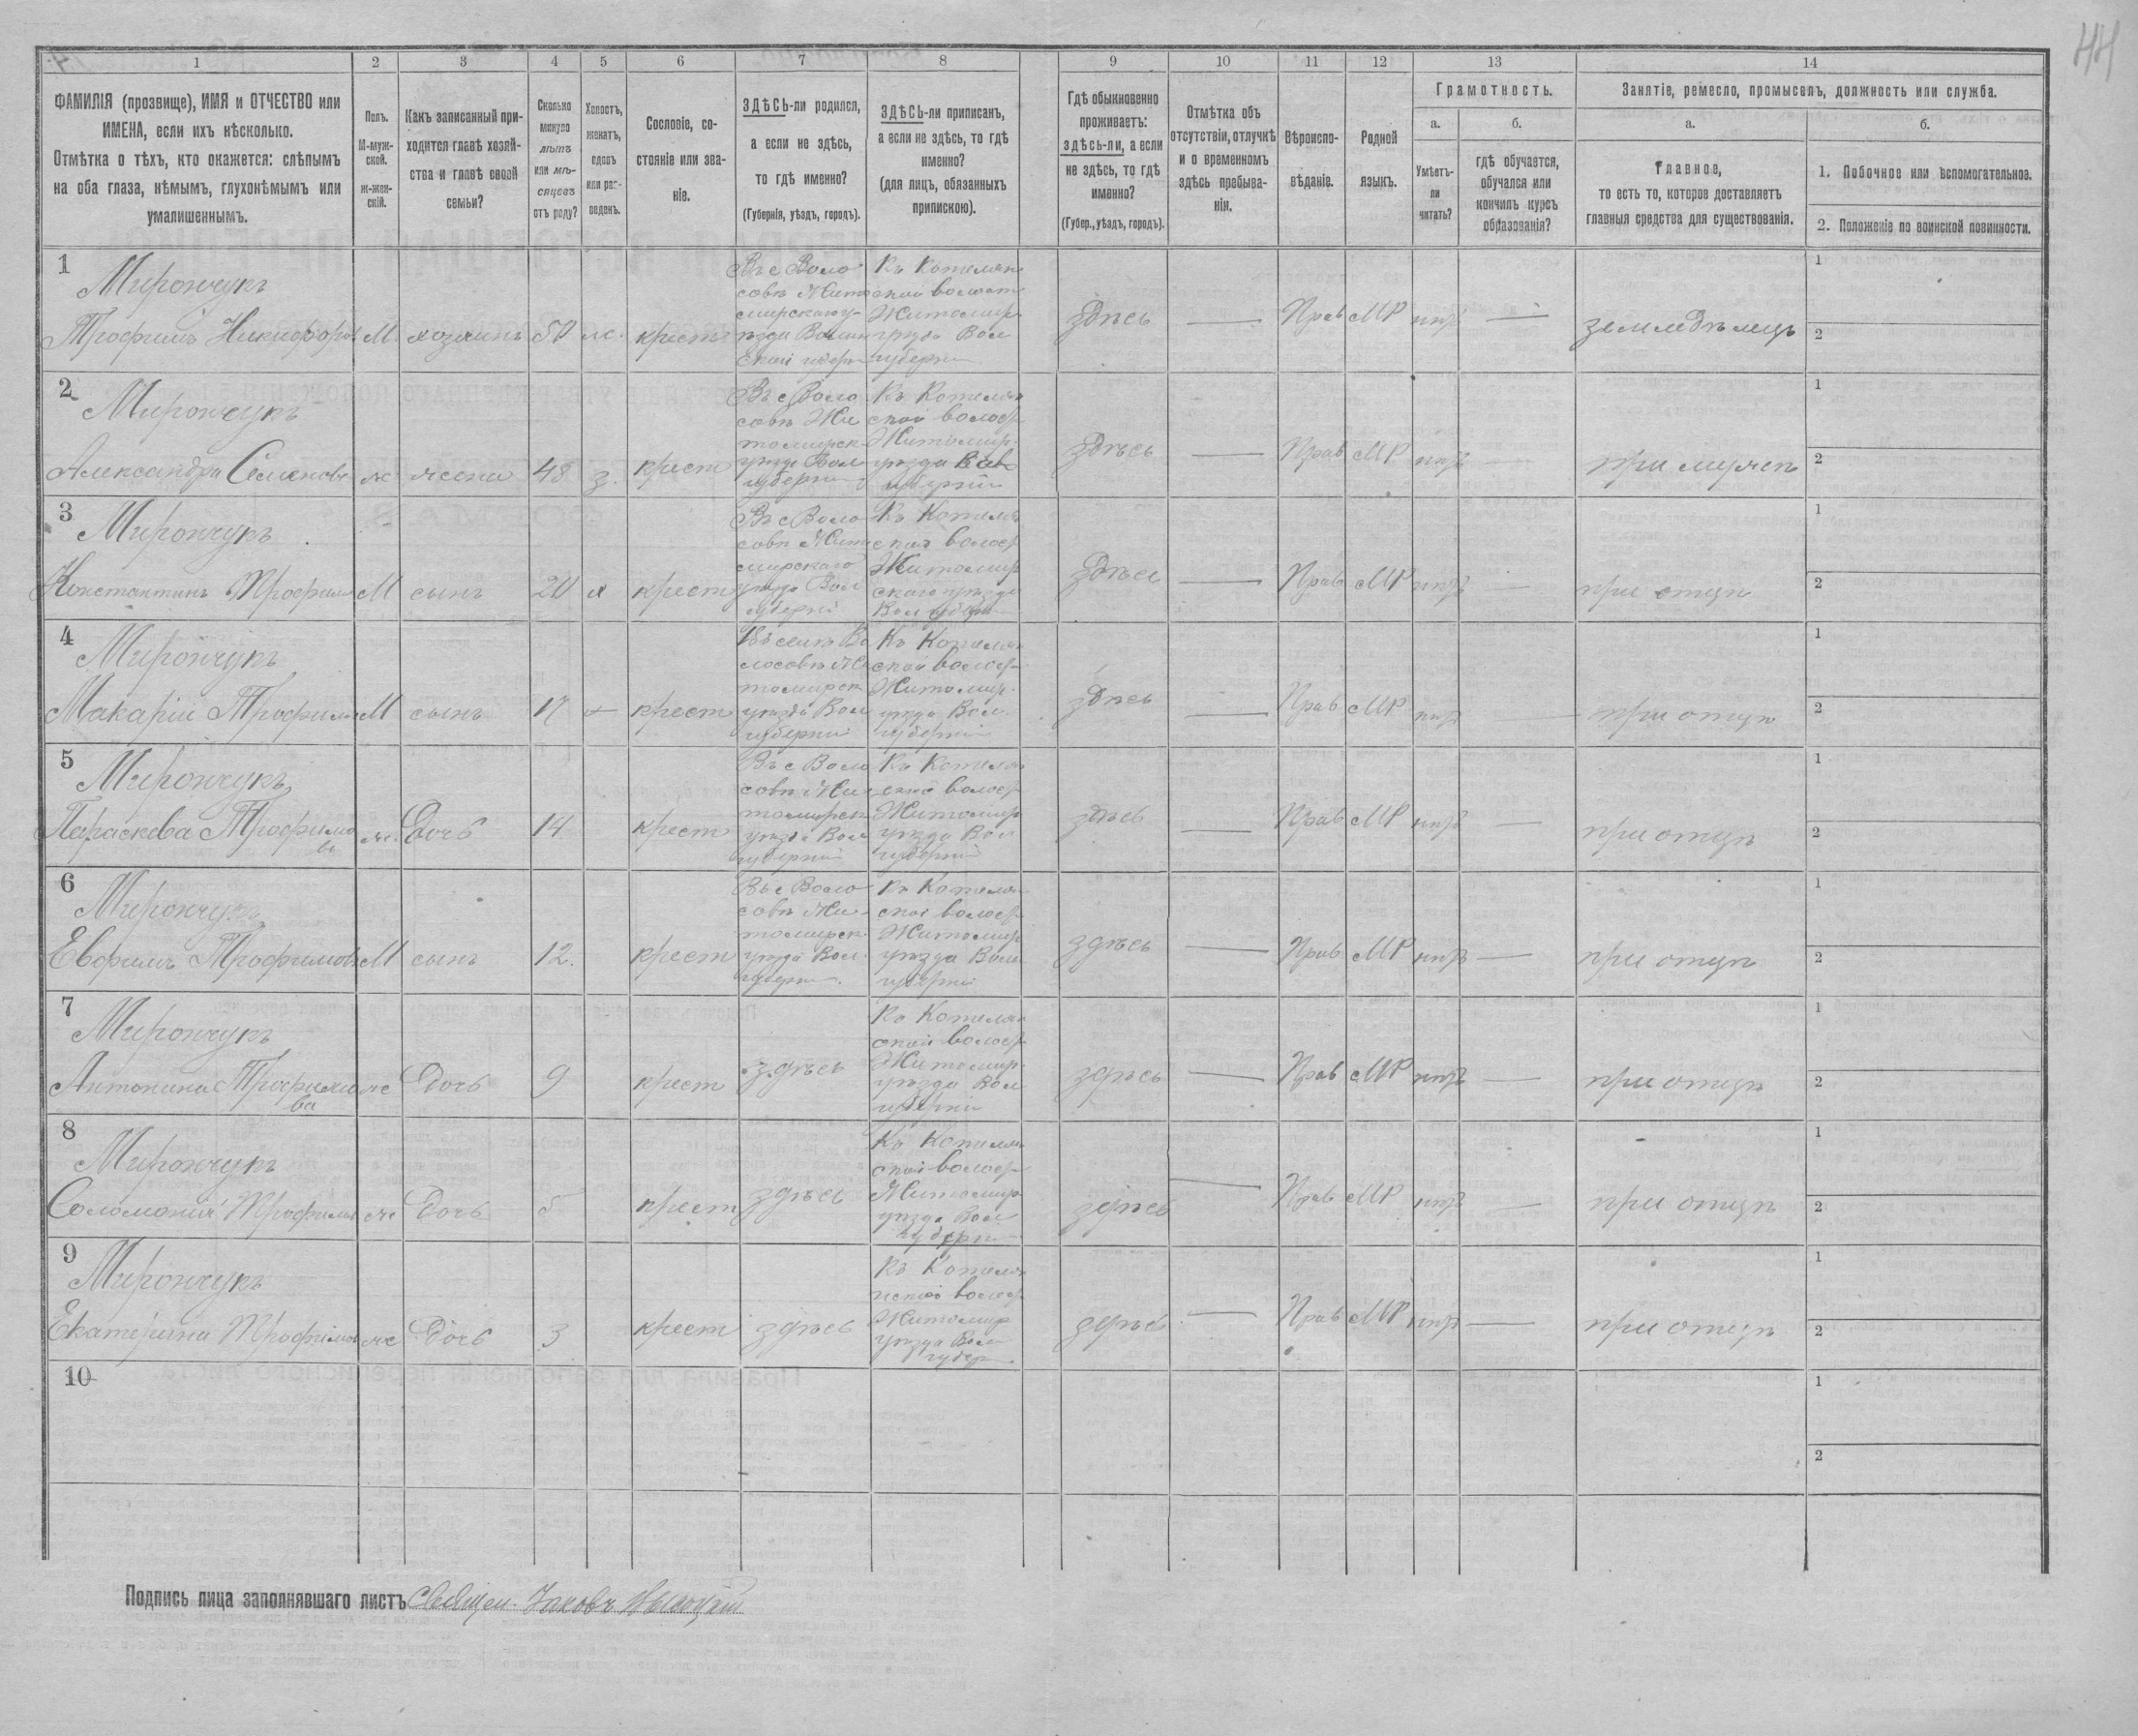 НН
1 2 3 4 5 6 7 8 9 10 11 12 13 14
ФАМИЛІЯ (прозвище), ИМЯ и ОТЧЕСТВО или
ИМЕНА, если ихъ нѣсколько.
Отмѣтка о тѣхъ, кто окажется: слѣпымъ
на оба глаза, нѣмымъ, глухонѣмымъ или
умалишеннымъ.
Полъ.
М-муж-
ской.
ж-жен-
скій.
Какъ записанный при-
ходится главѣ хозяй-
ства и главѣ своей
семьи?
Сколько
минуло
лѣтъ
или мѣ-
сяцевъ
отъ роду?
Холостъ,
женатъ,
вдовъ
или раз-
веденъ.
Сословіе, со-
стояніе или зва-
ніе.
ЗДѢСЬ-ли родился,
а если не здѣсь,
то гдѣ именно?
(Губернія, уѣздъ, городъ).
ЗДѢСЬ-ли приписанъ,
а если не здѣсь, то гдѣ
именно?
(для лицъ, обязанныхъ
припискою).
Гдѣ обыкновенно
проживаетъ:
здѣсь-ли, а если
не здѣсь, то гдѣ
именно?
(Губер., уѣздъ, городъ).
Отмѣтка объ
отсутствіи, отлучкѣ
и о временномъ
здѣсь пребыва-
ніи.
Вѣроиспо-
вѣданіе.
Родной
языкъ.
Грамотность.
а.
Умѣетъ-
ли
читать?
б.
гдѣ обучается,
обучался или
кончилъ курсъ
образованія?
Занятіе, ремесло, промыселъ, должность или служба.
а.
Главное,
то есть то, которое доставляетъ
главныя средства для существованія.
б.
1. Побочное или вспомогательное.
2. Положеніе по воинской повинности.
1
Мирончукъ
Трофимъ Никифоров М. хозяинъ 50 ж. крест
Въ с Воло
совѣ Жито
мирскаго у-
ѣзда Волин
ской губерн
Къ Котелян
ской волост
Житомир.
уѣзда Вол
губерни
здѣсь — Прав МР нѣтъ — земледѣлецъ
1
2
2
Мирончукъ
Александра Семенов ж жена 48 з. крест
Въ с Воло
совѣ Жи
томирск
уѣзда Вол
губерни
Къ Котелян
ской волост
Житомир.
уѣзда
губернiи
здѣсь — Прав МР нѣтъ — при мужѣ
1
2
3
Мирончукъ
Константинъ Трофим М сынъ 20 х крест
Въ с Воло
совѣ Жит
мирскаго
уѣзда Вол
губернiй
Къ Котелян
ская волост
Житомир
скаго уѣзда
Вол губерн
здѣсь — Прав МР нѣтъ — при отцѣ
1
2
4
Мирончукъ
Макарій Трофим М сынъ 17 х крест
Въ селѣ Во
лосовѣ Жи
томирск
уѣзда Вол
губернiи
Къ Котелян
ской волост
Житомир.
уѣзда Вол
губернiи
здѣсь — Прав МР нѣтъ — при отцѣ
1
2
5
Мирончукъ
Параскева Трофимо
ва ж. Дочь 14 крест
Въ с Воло
совѣ Жи
томирск
уѣзда Вол
губернiй
Къ Котелян
ской волост
Житомир
уѣзда Вол
губернiй
здѣсь — Прав МР нѣтъ — при отцѣ
1
2
6
Мирончукъ
Евфимъ Трофимов М сынъ 12. крест
Въ с Воло
совѣ Жи-
томирск.
уѣзда Вол.
губерни.
Къ Котелян
ской волост
Житомир
уѣзда Вол
губернi
здѣсь — Прав МР нѣтъ — при отцѣ
1
2
7
Мирончукъ
Антонина Трофимо
ва ж Дочь 9 крест здѣсь
Къ Котелян
ской волост
Житомир.
уѣзда Вол
губернiи
здѣсь — Прав МР нѣтъ — при отцѣ
1
2
8
Мирончукъ
Соломонія Трофимов ж Дочь 5 крест здѣсь
Къ Котелян
ской волост
Житомир
уѣзда Вол
губерни
здѣсь — Прав МР нѣтъ — при отцѣ
1
2
9
Мирончукъ
Екатерина Трофимов ж Дочь 3 крест здѣсь
Къ Котелян
ской волост
Житомир
уѣзда Вол
губер
здѣсь — Прав МР нѣтъ — при отцѣ
1
2
10
1
2
Подпись лица заполнявшаго листъ Священ. Іаковъ Высоцкій